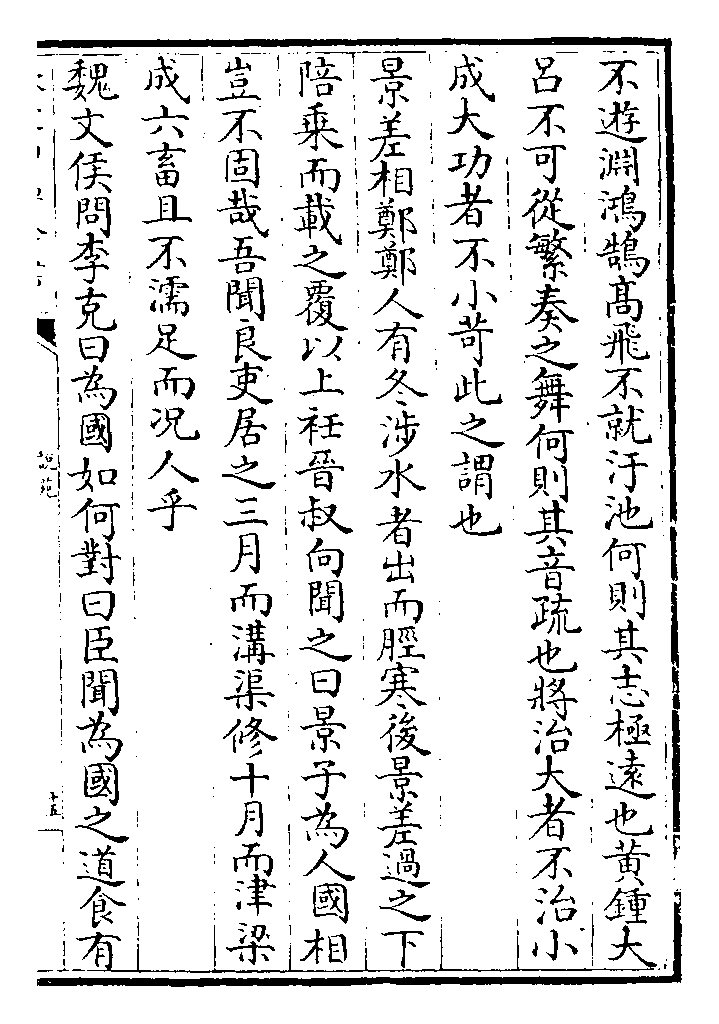 不遊淵鴻鵠髙飛不就汙池何則其志極逺也黄鍾大
吕不可從繁奏之舞何則其音疏也將治大者不治小
成大功者不小苛此之謂也
景差相鄭鄭人有冬涉水者出而脛寒後景差過之下
陪乗而載之覆以上衽晉叔向聞之曰景子為人國相
豈不固哉吾聞良吏居之三月而溝渠修十月而津梁
成六畜且不濡足而况人乎
魏文侯問李克曰為國如何對曰臣聞為國之道食有
說苑
十五